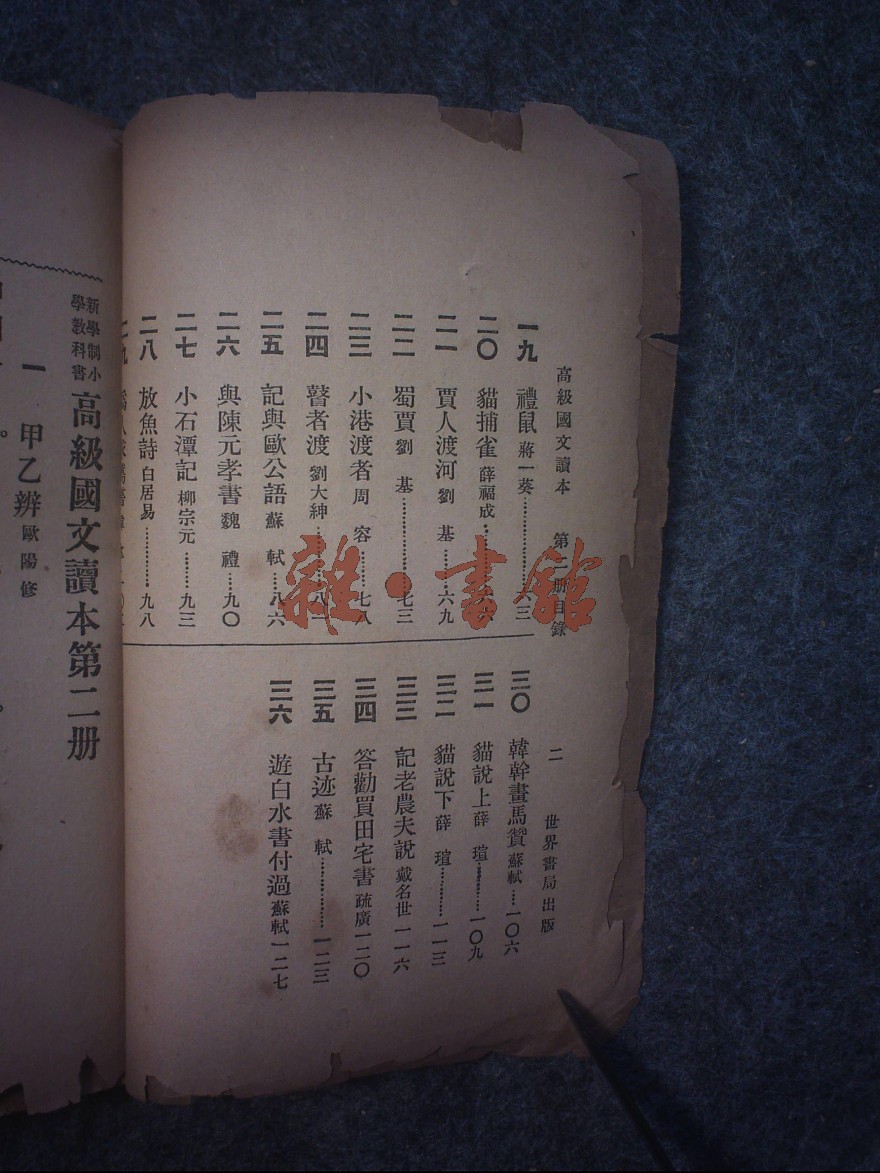 高級國文讀本 第二册目錄 二 世界書局出版
一九 禮鼠 蔣一葵……六三
二〇 貓捕雀 薛福成……六六
二一 賈人渡河 劉基……六九
二二 蜀賈 劉基……七三
二三 小港渡者 周容……七八
二四 瞽者渡 劉大紳……八二
二五 記與歐公語 蘇軾……八六
二六 與陳元孝書 魏禮……九〇
二七 小石潭記 柳宗元……九三
二八 放魚詩 白居易……九八
二九
三〇 韓幹畫馬贊 蘇軾……一〇六
三一 貓說上 薛瑄……一〇九
三二 貓說下 薛瑄……一一三
三三 記老農夫說 戴名世 一一六
三四 答勸買田宅書 疏廣 一二〇
三五 古迹 蘇軾……一二三
三六 遊白水書付過 蘇軾 一二七
新學制小學教科書 高級國文讀本第二册
一 甲乙辨 歐陽修
雜·書館